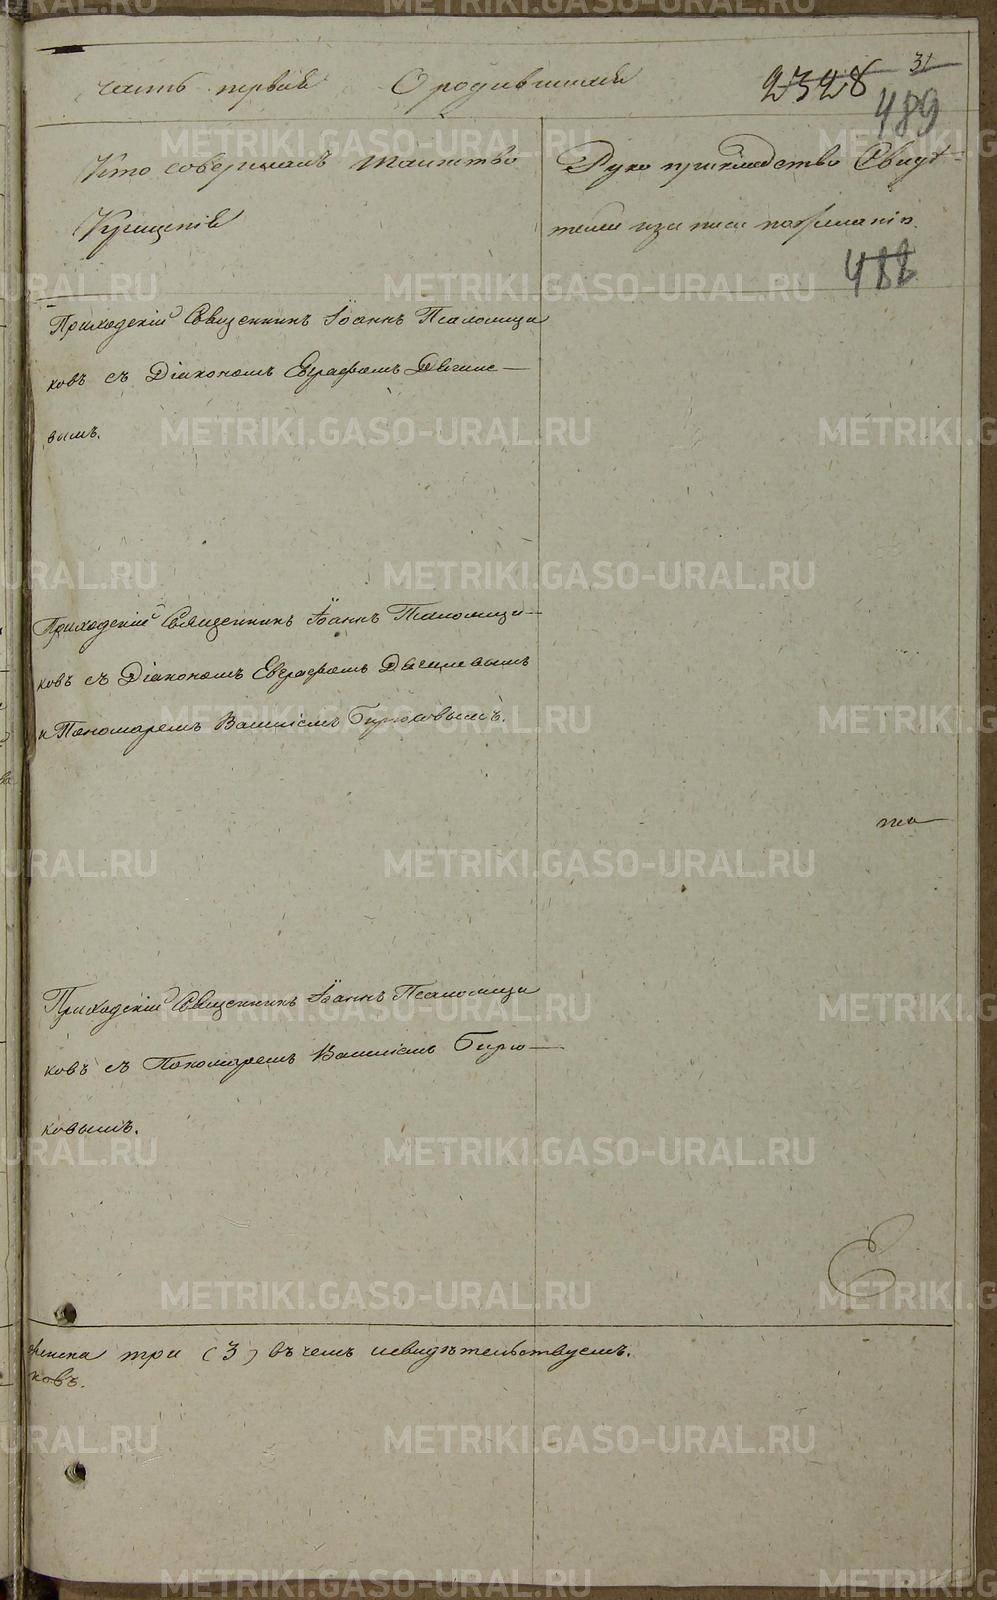 часть первая О родившихся 2328 31
489
Кто совершалъ таинство
Крещенія
Руко прикладство Свидѣ=
телей записи по желанію.
488
Приходскій Священникъ Іоаннъ Псаломщи
ковъ съ Діакономъ Евграфомъ
вымъ.
Приходскій Священникъ Іоаннъ Псаломщи-
ковъ съ Діакономъ Евграфомъ
и Пономаремъ Василіемъ Бирюковымъ.
Приходскій Священникъ Іоаннъ Псаломщи
ковъ съ Пономаремъ Василіемъ Бирю-
ковымъ.
три (3) въ чемъ и свидѣтельствуемъ.
ковъ.
METRIKI.GASO-URAL.RU